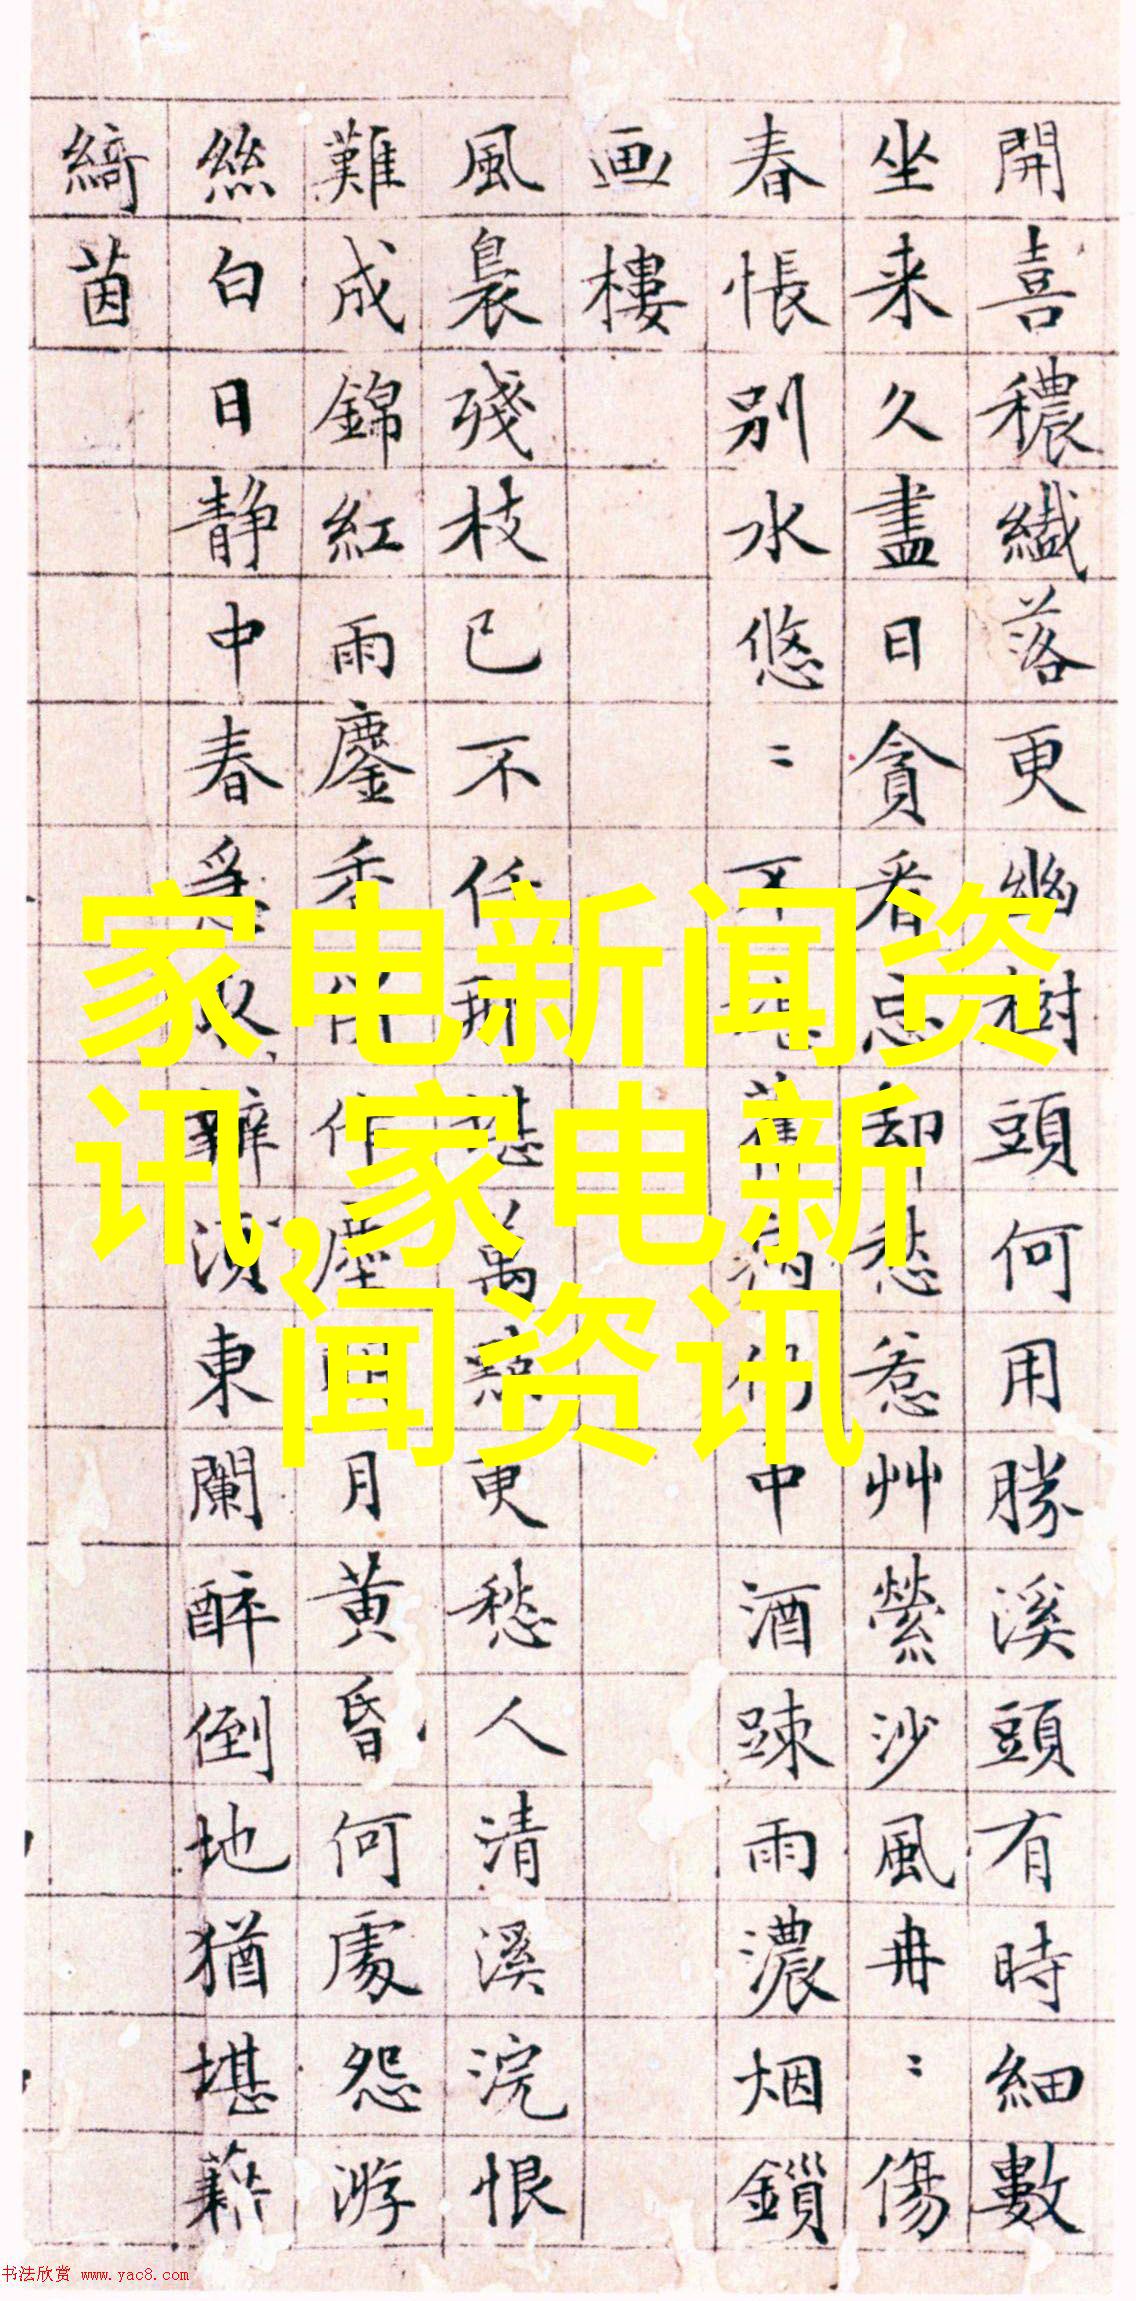 開喜穠纖落更幽樹頭何用勝溪頭有時細數
坐来久盡日貪看忘却愁惹艸縈沙風冉〻傷
春悵別水悠〻不舊病仍中酒踈雨濃烟鎖
画樓
風裊殘枝已不任那堪萬點更愁人清溪浣恨
難成錦紅雨鏖香作塵明月黄昏何處怨游
絲白日静中春須東闌醉倒地猶堪藉
綺茵
家电新闻资
讯,家电新
闻资讯
书法欣赏 www.yac8.com